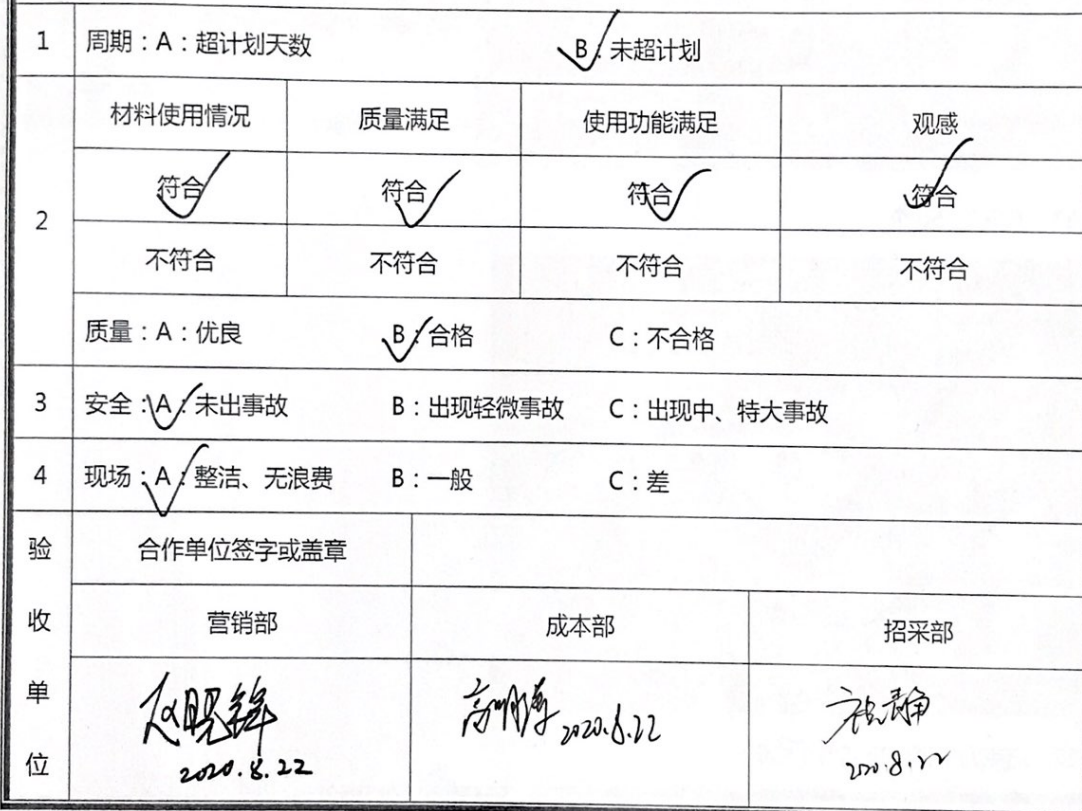 1 周期：A：超计划天数 B：未超计划
材料使用情况 质量满足 使用功能满足 观感
2 符合 符合 符合 符合
不符合 不符合 不符合 不符合
质量：A：优良 B：合格 C：不合格
3 安全：A：未出事故 B：出现轻微事故 C：出现中、特大事故
4 现场：A：整洁、无浪费 B：一般 C：差
验收单位
合作单位签字或盖章
营销部 成本部 招采部
2020.8.22 2020.8.22 2020.8.22